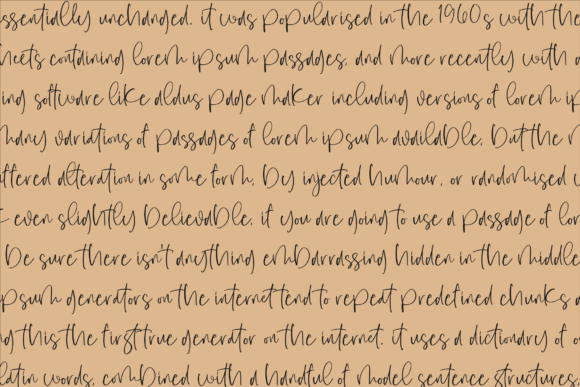 ssentially unchanged. it was popularised in the 1960s with the
heets containing lorem ipsum passages, and more recently with a
ing software like aldus page maker including versions of lorem ip
many variations of passages of lorem ipsum available, but the m
ffered alteration in some form, by injected humour, or randomised w
t even slightly believable. if you are going to use a passage of lor
be sure there isn't anything embarrassing hidden in the middle
psum generators on the internet tend to repeat predefined chunks a
ng this the first true generator on the internet. it uses a dictionary of o
latin words, combined with a handful of model sentence structures,